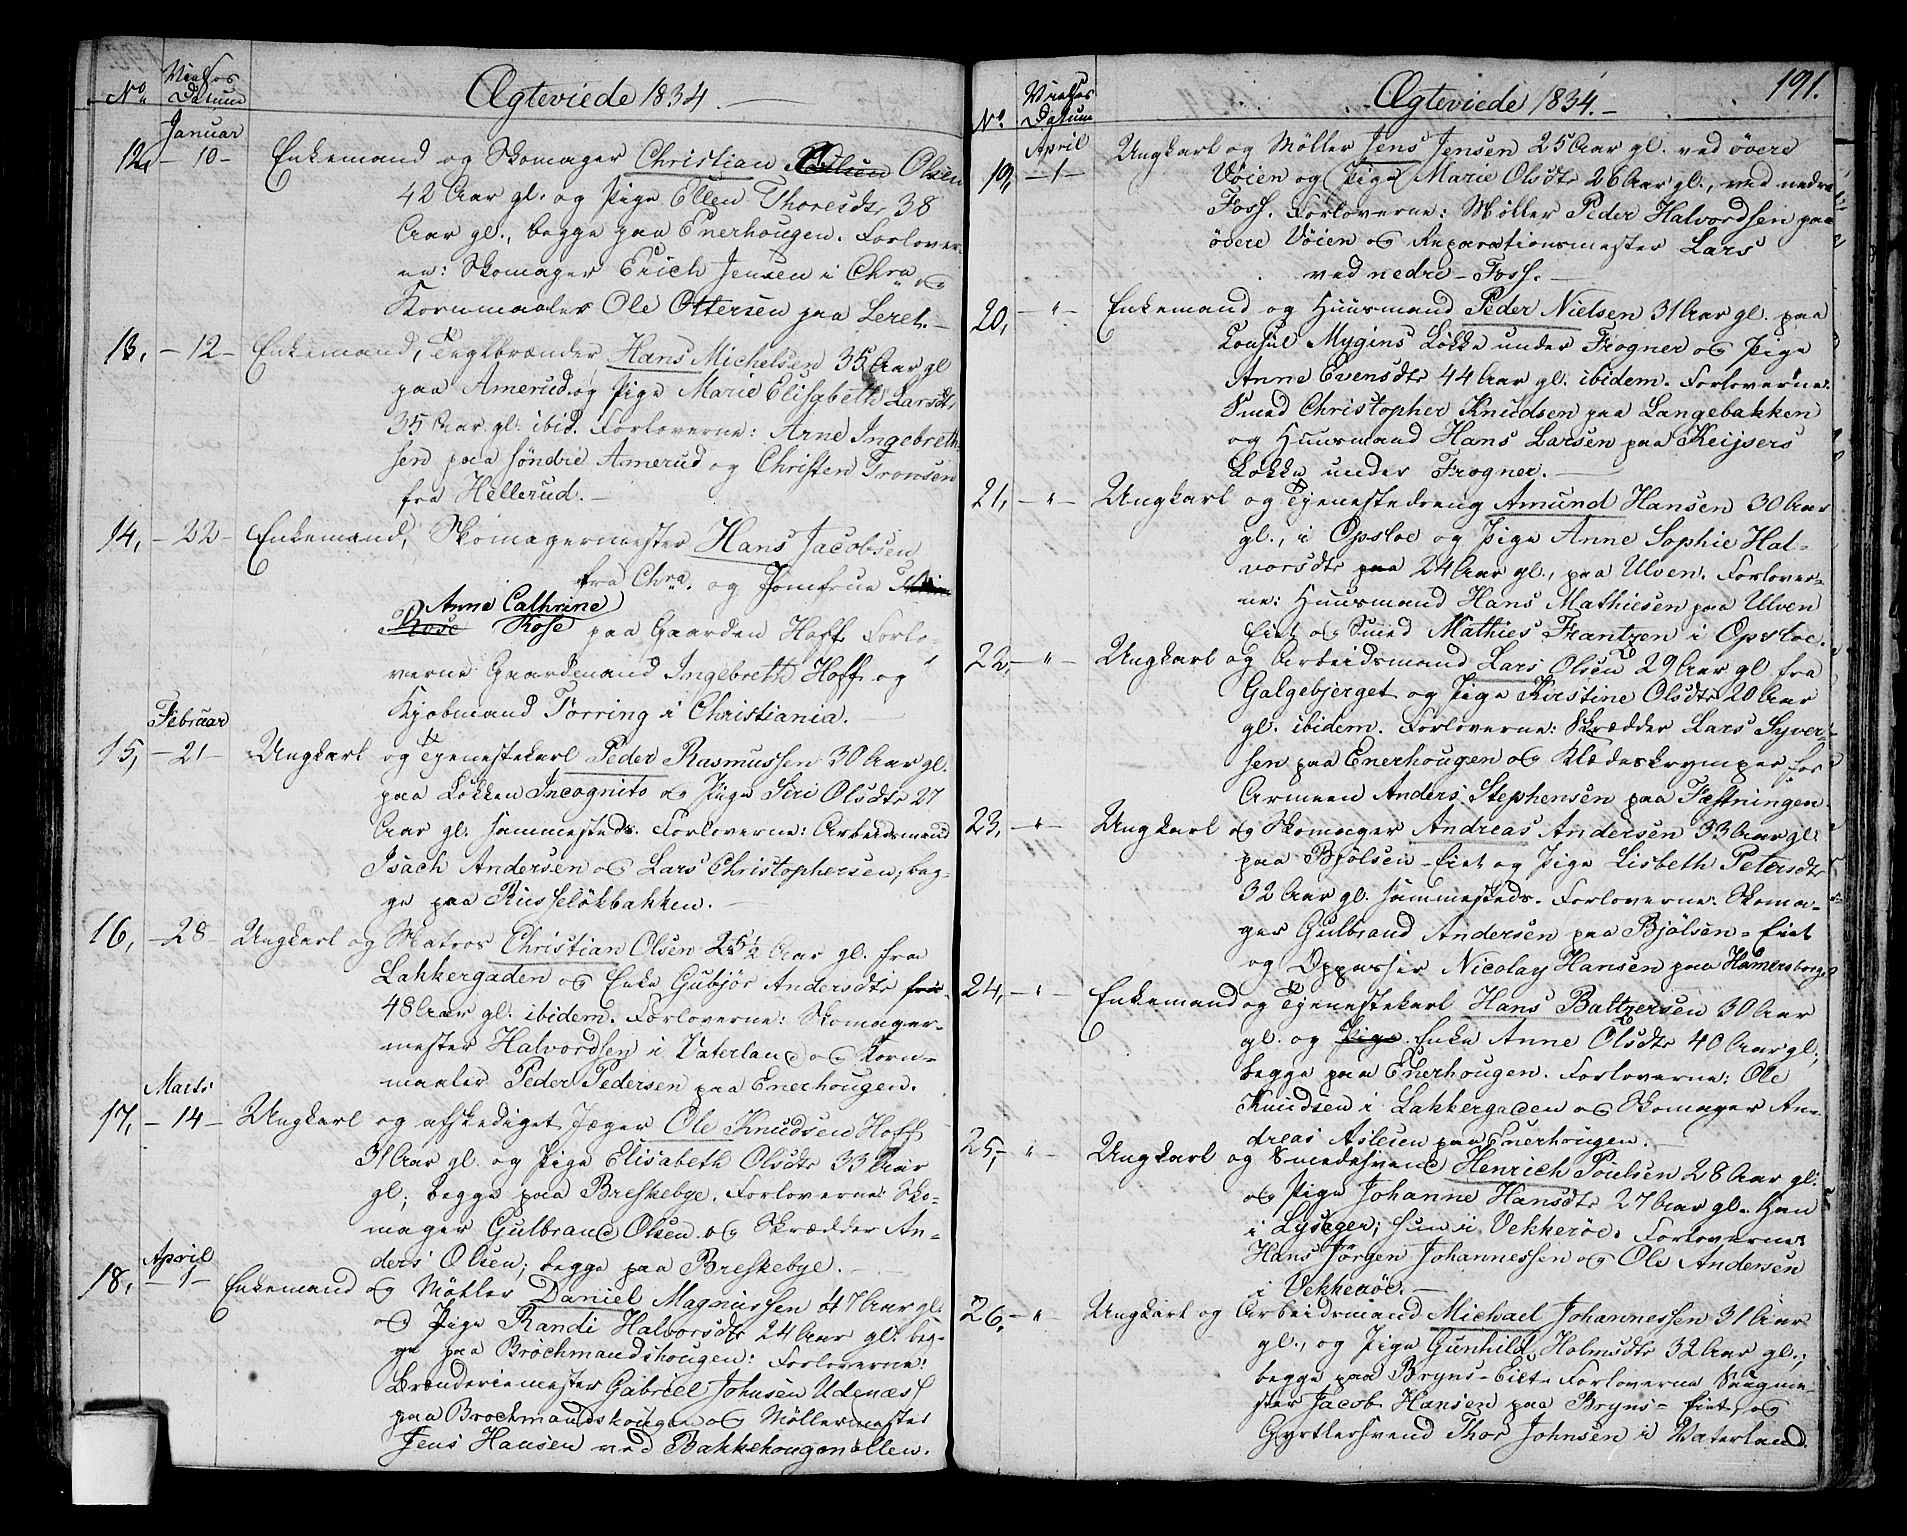 No.
Vielses
Datum
Ægteviede 1834. —
Januar
12, — 10 — Enkemand og Skomager Christian Olsen
42 Aar gl. og Pige Ellen Thoresdtr 38
Aar gl., begge paa Enerhougen. Forlover-
ne: Skomager Erich Jensen i Chra. og
Kornmaaler Ole Ottersen paa Leret. —
13, — 12 — Enkemand, Teglbrænder Hans Michelsen 35 Aar gl
paa Amerud og Pige Marie Elisabeth Larsdtr
35 Aar gl. ibid. Forloverne: Arne Ingebreth-
sen paa søndre Amerud og Christen Trowsen
fra Hellerud. —
14, — 22 — Enkemand, Skomagermester Hans Jacobsen
fra Chra. og Jomfrue
Anne Cathrine
Rose Rose paa Gaarden Hoff Forlo-
verne Gaardmand Ingebreth Hoff og
Kjøbmand Torring i Christiania.
Februar
15, — 21 — Ungkarl og Tjenestekarl Peder Rasmussen 30 Aar gl.
paa Løkken Incognito og Pige Siri Olsdtr 27
Aar gl. sammesteds. Forloverne: Arbeidsmand
Isach Andersen og Lars Christophersen, beg-
ge paa Russeløkbakken. —
16, — 28 — Ungkarl og Matros Christian Olsen 25½ Aar gl. fra
Lakkergaden og Enke Gubjør Andersdtr fra
48 Aar gl. ibidem. Forloverne: Skomager-
mester Halvordsen i Vaterland og Korn-
maaler Peder Pedersen paa Enerhougen.
Marts
17, — 14 — Ungkarl og afskediget Jæger Ole Knudsen Hoff
31 Aar gl. og Pige Elisabeth Olsdtr 33 Aar
gl; begge paa Breskebye. Forloverne: Sko-
mager Gulbrand Olsen og Skrædder An-
ders Olsen; begge paa Breskebye. —
April
18, — 1 — Enkemand og Møller Daniel Magnussen 47 Aar gl.
og Pige Randi Halvorsdtr 24 Aar gl. beg-
ge paa Brochmandshougen: Forloverne:
Brænderiemester Gabriel Johnsen Udenæs
paa Brochmandshougen og Møllermester
Jens Hansen ved Bakkehougmøllen.
191.
No.
Vielses
Datum
Ægteviede 1834. —
April
19, — 1 — Ungkarl og Møller Jens Jensen 25 Aar gl. ved øvere
Vøien og Pige Marie Olsdtr 26 Aar gl., ved nedre
Foss. Forloverne: Møller Peder Halvordsen paa
øvere Vøien og Reparationsmester Lars
ved nedre Foss. —
20, — " — Enkemand og Huusmand Peder Nielsen 31 Aar gl. paa
Consul Mygins Løkke under Frogner og Pige
Anne Evensdtr 44 Aar gl. ibidem. Forloverne:
Smed Christopher Knudsen paa Langebakken
og Huusmand Hans Larsen paa Keijsers
Løkke under Frogner. —
21, — " — Ungkarl og Tjenestedreng Amund Hansen 30 Aar
gl., i Opsloe og Pige Anne Sophie Hal-
vorsdtr paa 24 Aar gl., paa Ulven. Forlover-
ne: Huusmand Hans Mathiesen paa Ulven
Eiet og Smed Mathies Frantzen i Opsloe.
22, — " — Ungkarl og Arbeidsmand Lars Olsen 29 Aar gl fra
Galgebjerget og Pige Kirstine Olsdtr 20 Aar
gl. ibidem. Forloverne: Skrædder Lars Syver-
sen paa Enerhougen og Klædeskrymper for
Armeen Anders Stephensen paa Fæstningen
23, — " — Ungkarl og Skomager Andreas Andersen 33 Aar gl.
paa Bjølsen-Eiet og Pige Lisbeth Petersdtr
32 Aar gl. sammesteds. Forloverne: Skoma-
ger Gulbrand Andersen paa Bjølsen-Eiet
og Oppasser Nicolay Hansen paa Hamersborg
24, — " — Enkemand og Tjenestekarl Hans Baltzersen 30 Aar
gl. og Pige Enke Anne Olsdtr 40 Aar gl;
begge paa Enerhougen. Forloverne: Ole
Knudsen i Lakkergaden og Skomager An-
dreas Aslesen paa Enerhougen.
25, — " — Ungkarl og Smedesvend Henrich Poulsen 28 Aar gl.
og Pige Johanne Hansdtr 27 Aar gl. Han
i Lysager; hun i Vekkerøe. Forloverne:
Hans Jørgen Johannessen og Ole Andersen
i Vekkerøe. —
26, — " — Ungkarl og Arbeidsmand Michael Johannessen 31 Aar
gl., og Pige Gunhild Holmsdtr 32 Aar gl.;
begge paa Bryns-Eiet. Forloverne Saugme-
ster Jacob Hansen paa Bryns-Eiet, og
Gyrtlersvend Thor Johnsen i Vaterland.